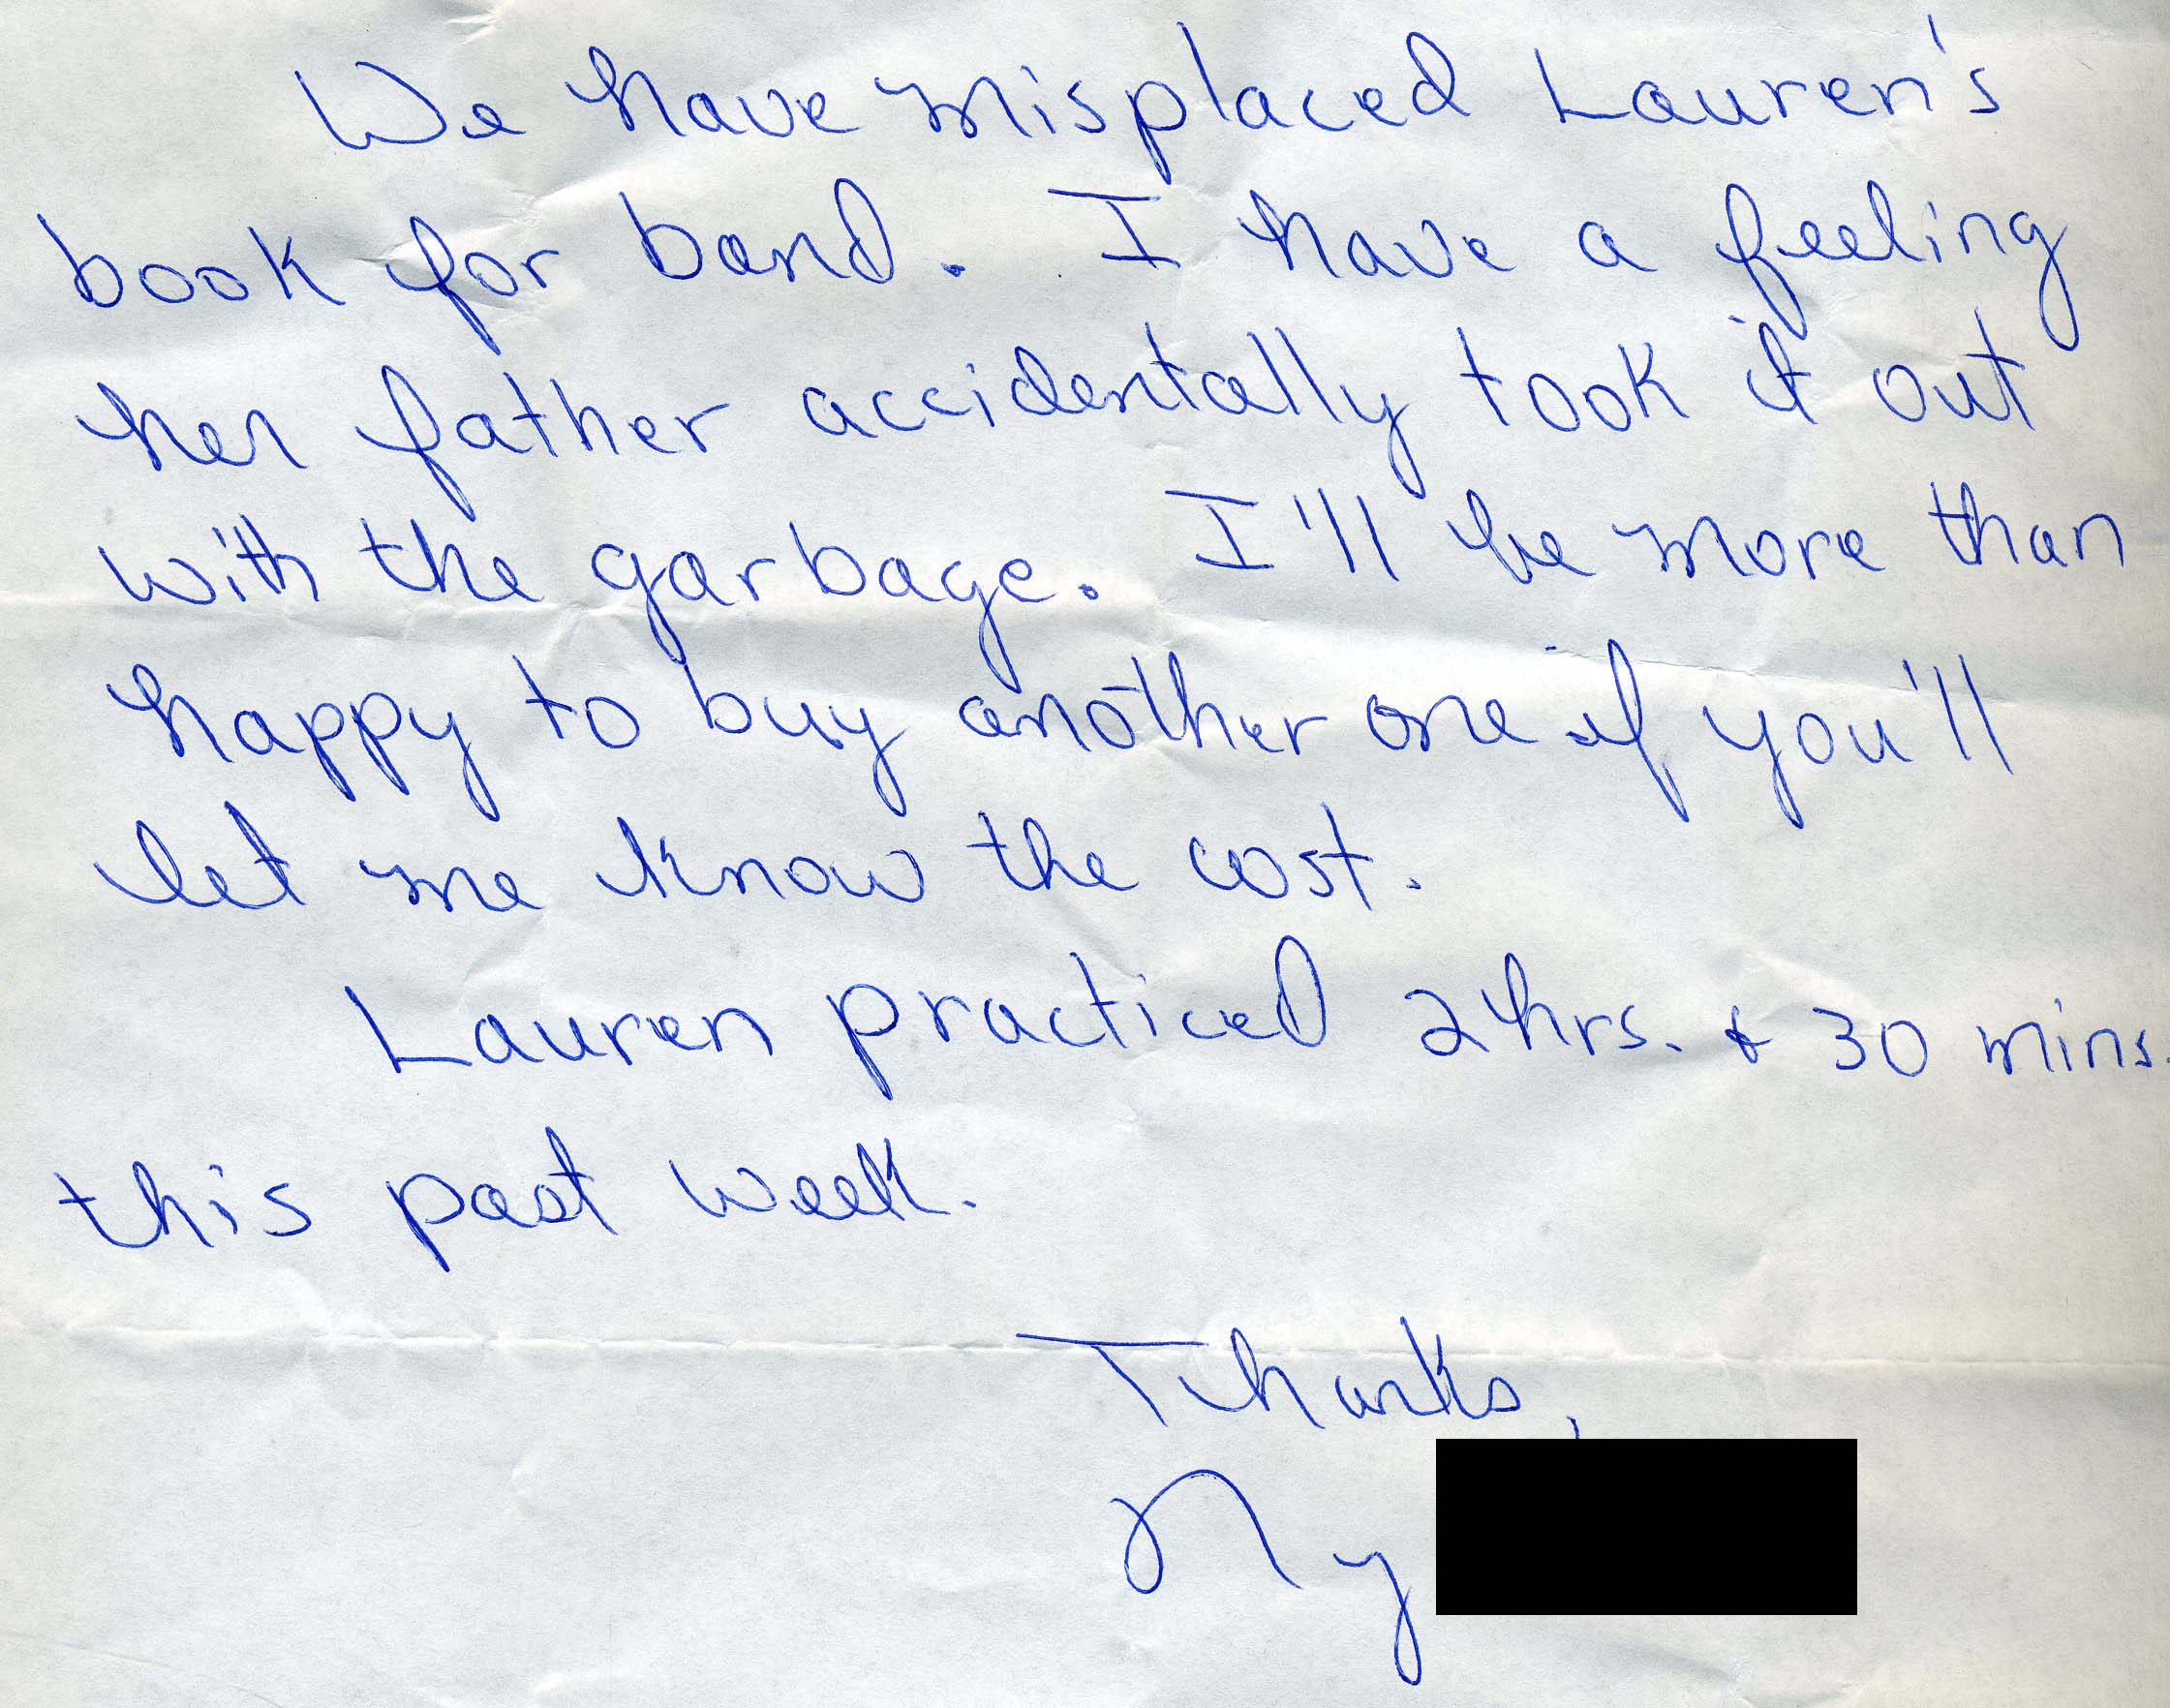 We have misplaced Lauren's
book for band. I have a feeling
her father accidentally took it out
with the garbage. I'll be more than
happy to buy another one if you'll
let me know the cost.
Lauren practiced 2 hrs. & 30 mins.
this past week.
Thanks,